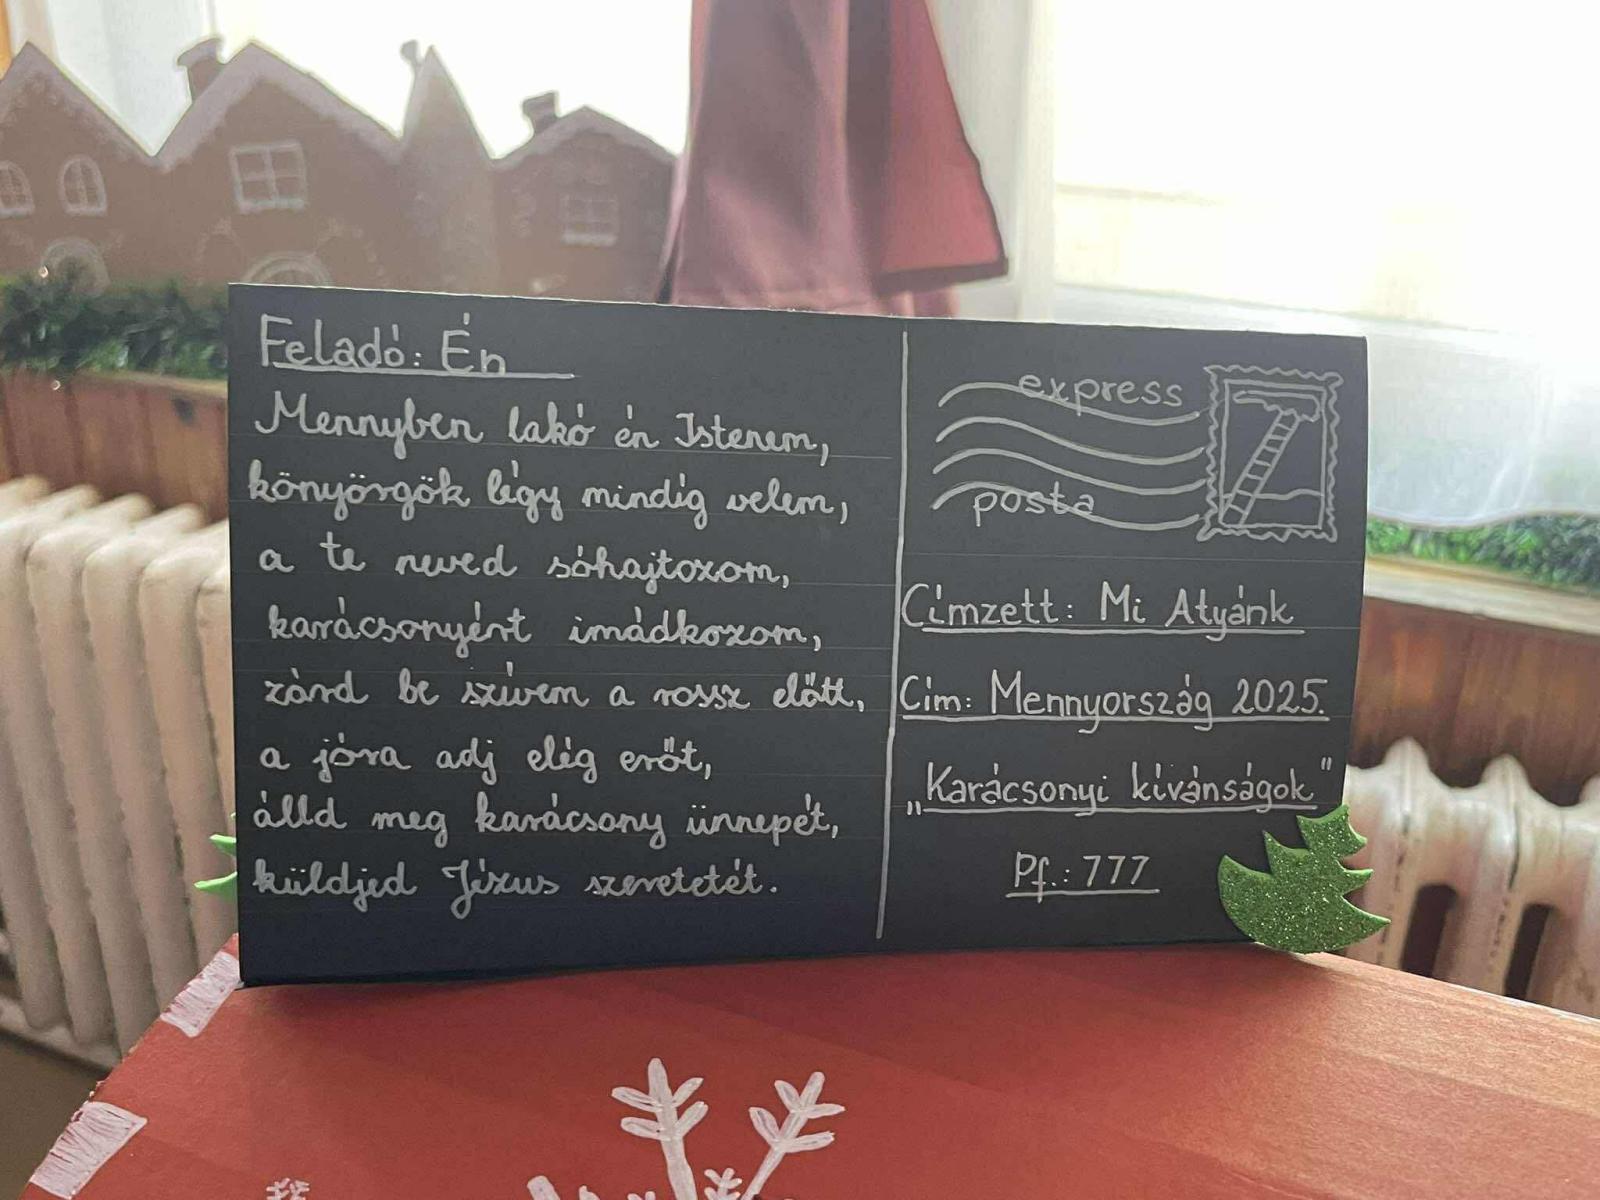 Feladó: Én
Mennyben lakó én Istenem,
könyörgök légy mindig velem,
a te neved sóhajtozom,
karácsonyért imádkozom,
zárd be szívem a rossz előtt,
a jóra adj elég erőt,
álld meg karácsony ünnepét,
küldjed Jézus szeretetét.
express
posta
Címzett: Mi Atyánk
Cím: Mennyország 2025.
„Karácsonyi kívánságok"
Pf.: 777